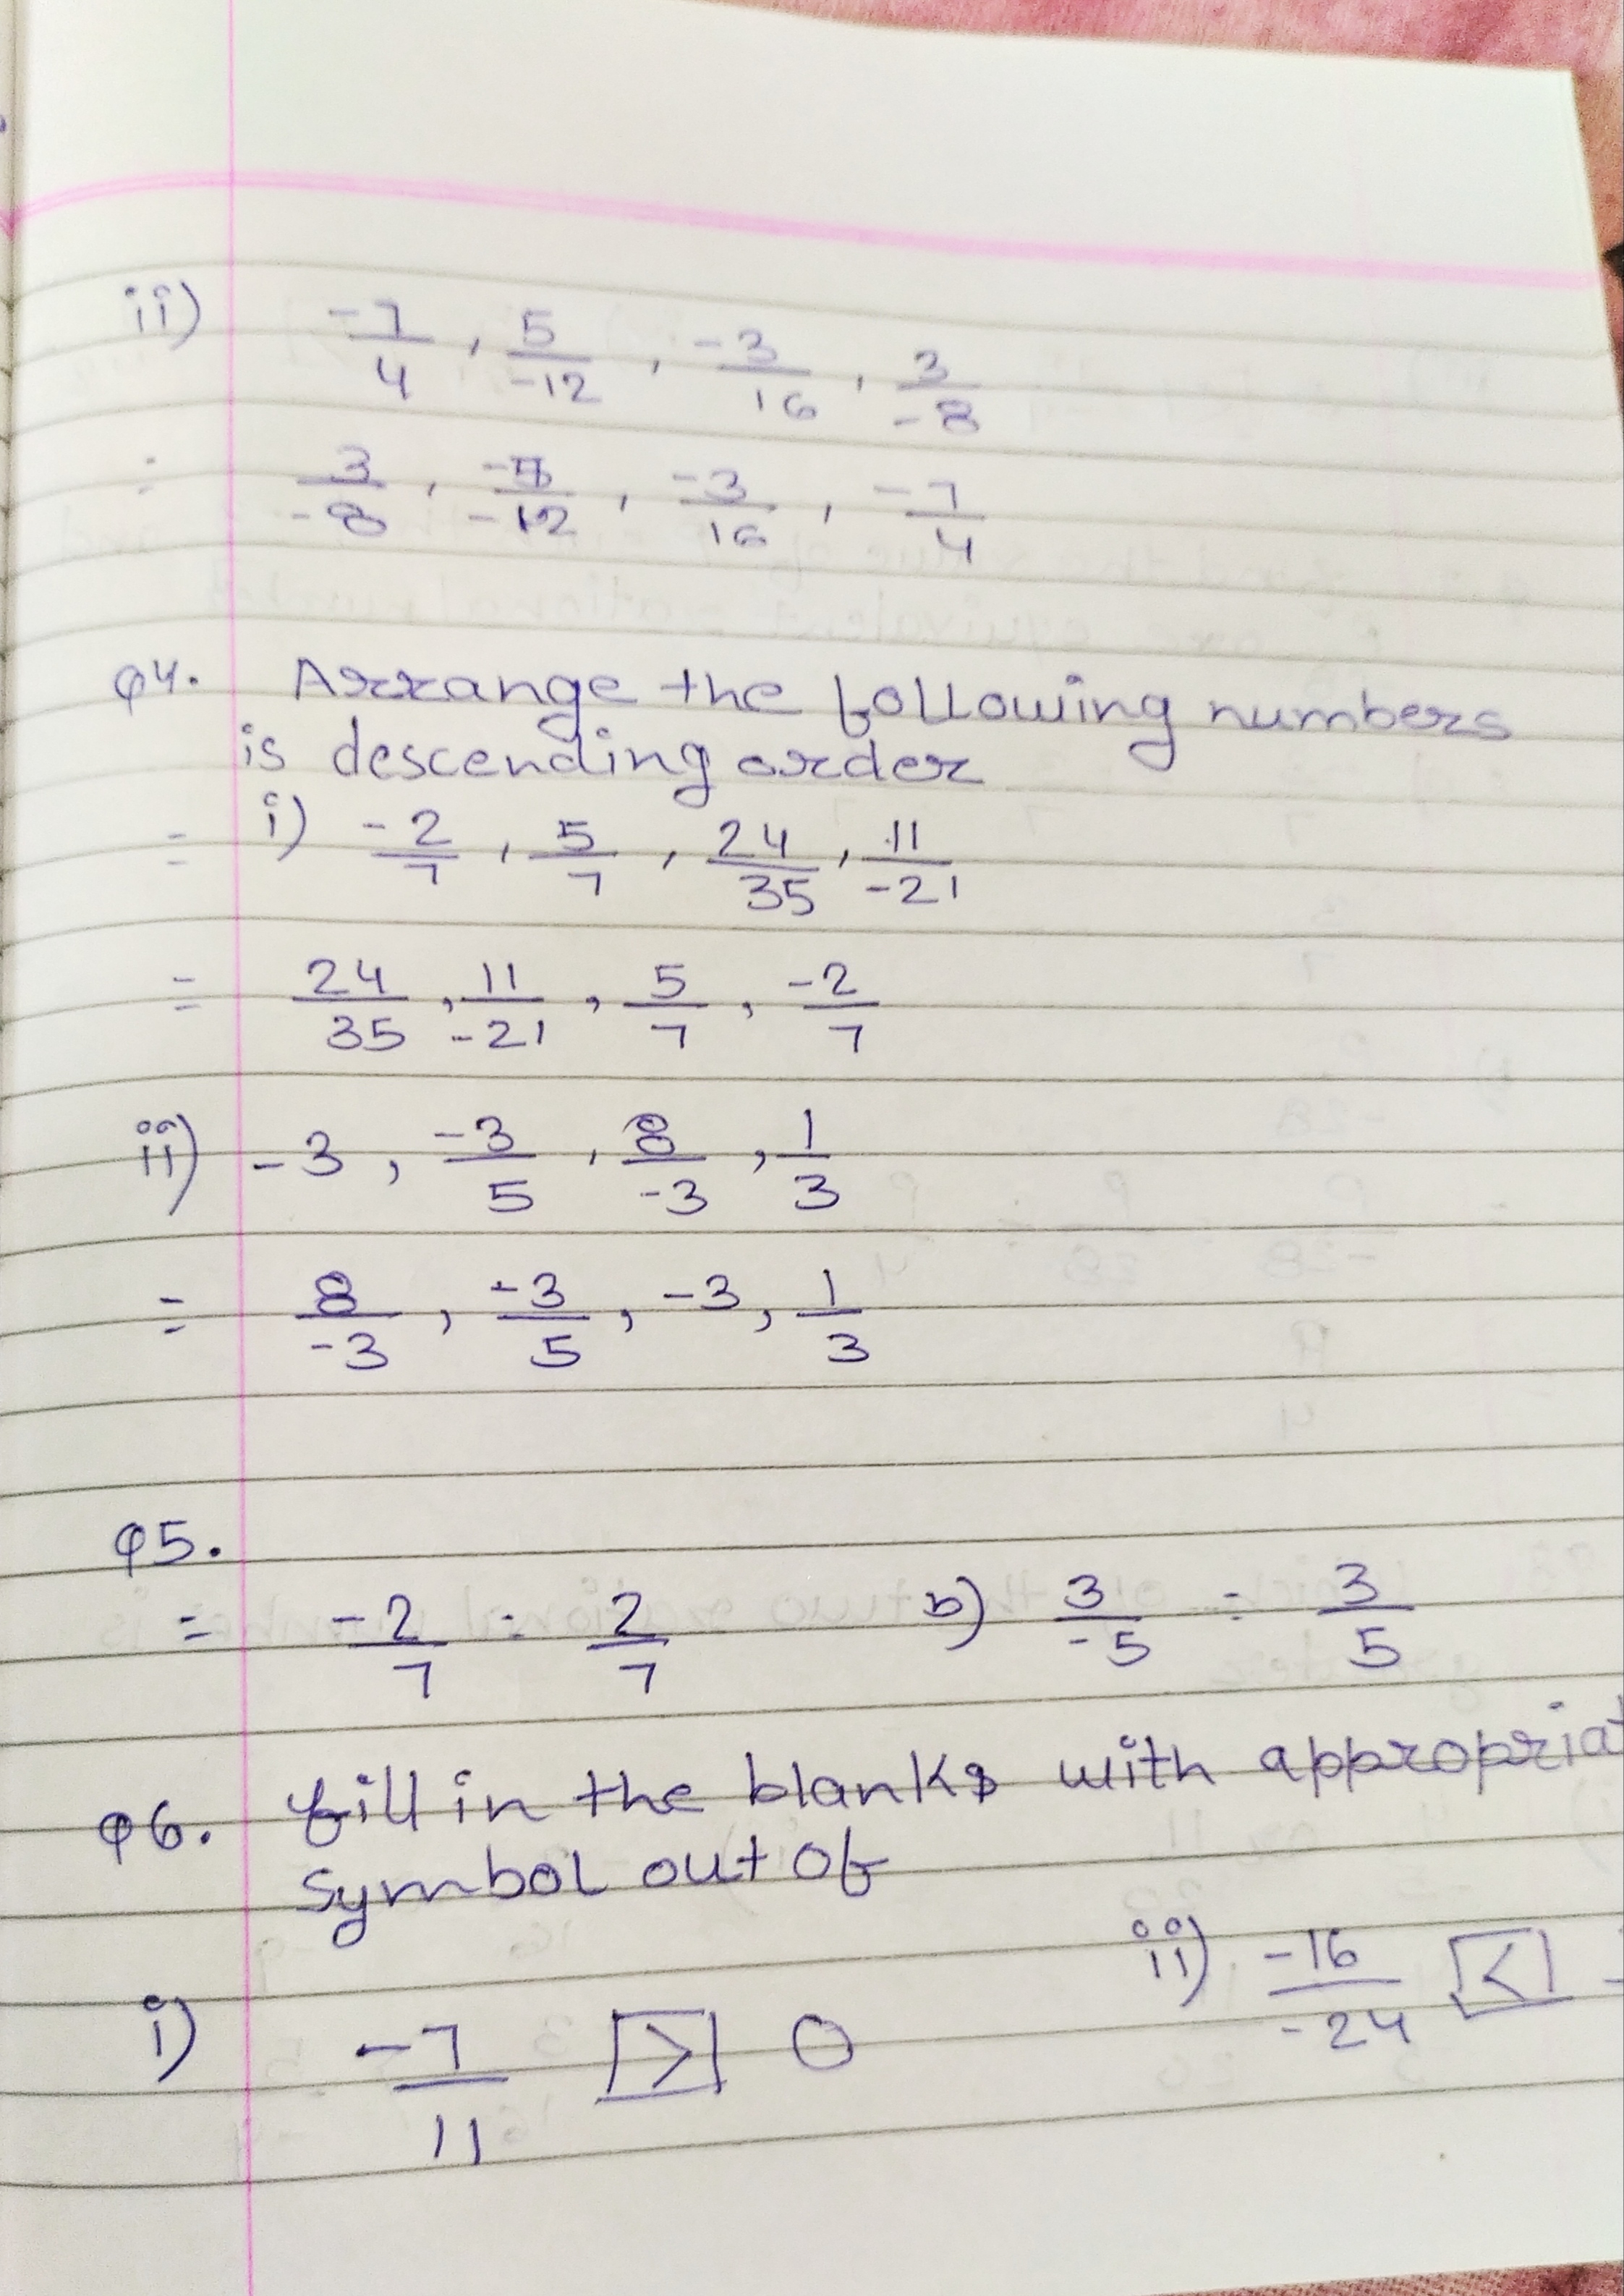 ii) -7/4 , 5/-12 , -3/16 , 3/-8
= 3/-8 , -5/-12 , -3/16 , -7/4
Q4. Arrange the following numbers
is descending order
= i) -2/7 , 5/7 , 24/35 , 11/-21
= 24/35 , 11/-21 , 5/7 , -2/7
ii) -3 , -3/5 , 8/-3 , 1/3
= 8/-3 , -3/5 , -3 , 1/3
Q5.
= -2/7 = 2/7 b) 3/-5 = 3/5
Q6. fill in the blanks with appropriat
symbol out of
i) -7/11 [>] 0 ii) -16/-24 [<]